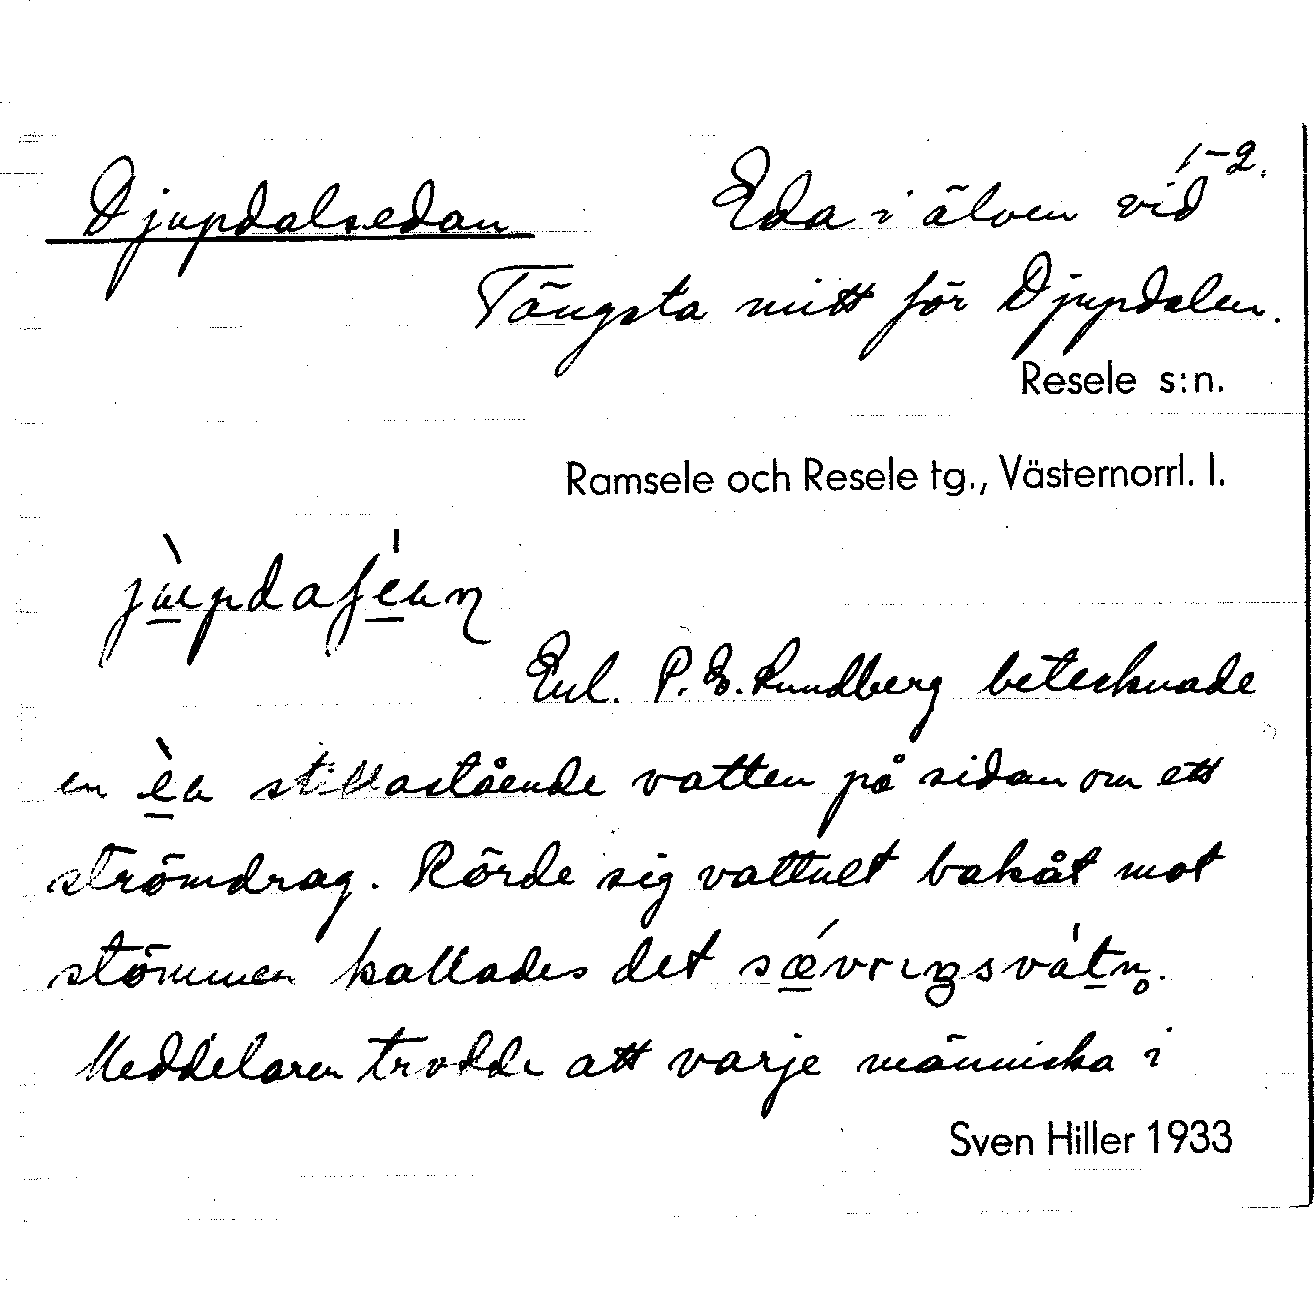 1-2.
Djupdalsedan Eda i älven vid
Tängsta mitt för Djupdalen.
Resele s:n.
Ramsele och Resele tg., Västernorrl. l.
Enl. P. E. Rundberg betecknade
en èa stillastående vatten på sidan om ett
strömdrag. Rörde sig vattnet bakåt mot
stömmen kallades det
Meddelaren trodde att varje människa i
Sven Hiller 1933